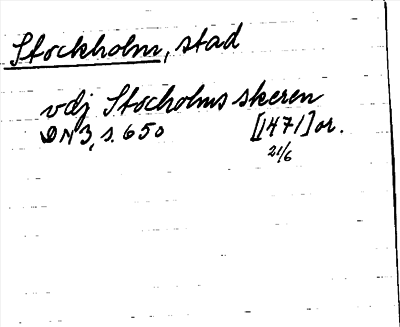 Stockholm, stad
vdj Stocholms skeren
DN 3, s. 650 [1471] or.
21/6